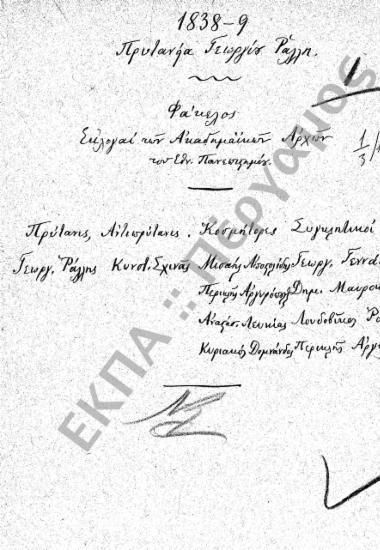 1838-9
Πρυτανεία Γεωργίου Ράλλη.
Φάκελος
Εκλογαί των Ακαδημαϊκών Αρχών
του Εθν. Πανεπιστημίου.
1/3
Πρύτανις, Αντιπρύτανις. Κοσμήτορες Συγκλητικοί
Γεωργ. Ράλλης Κωνστ. Σχινάς Μισαήλ Αποστολίδης Γεωργ. Γεννά
Περικλής Αργυρόπουλ Δημ. Μαυροκ
Αναστ. Λευκίας Λουδοβίκος Ρο
Κυριακός Δομνάνδος Περικλής Αργυ
ΕΚΠΑ :: Πέργαμος